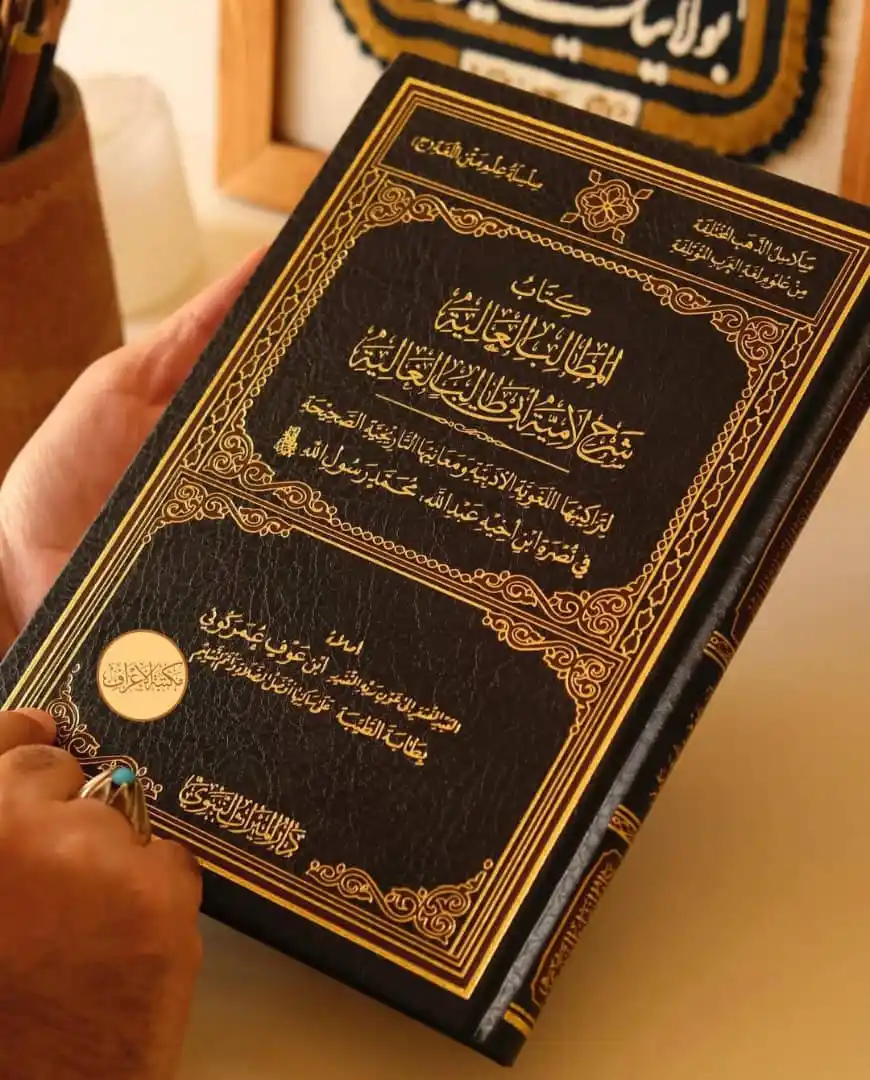 بولايتك
سلسلة علم متن اللغة (ج)
سلاسل الذهب المختلفة
من علوم لغة العرب المؤتلفة
كتاب
المطالب العالية
شرح لامية أبي طالب العالية
لتراكيبها اللغوية الأدبية ومعانيها التاريخية الصحيحة
في نصرة ابن أخيه عبد الله، محمد رسول الله ﷺ
إملاء
العبد الفقير إلى عفو ربه القدير ابن عوف عنمر كوني
بطابة الطيبة على ساكنها أفضل الصلاة وأتم التسليم
مكتبة الأعراف
دار الميراث النبوي